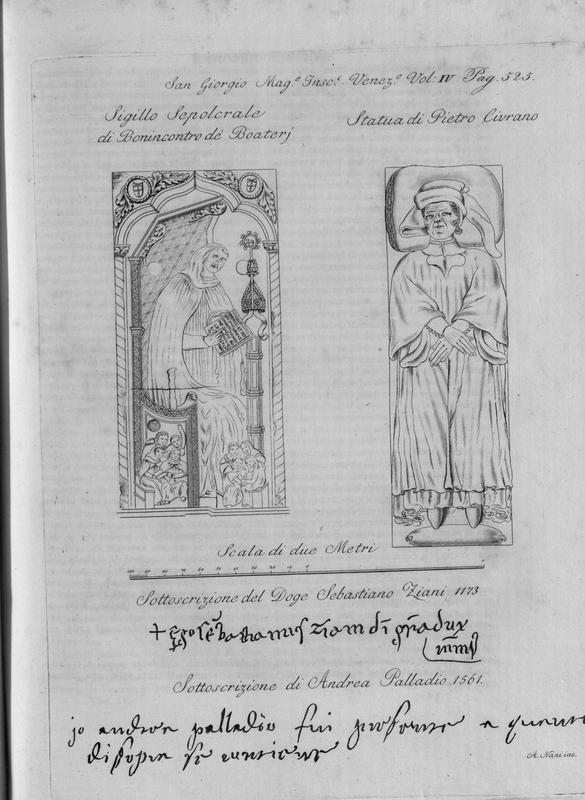 San Giorgio Mag.e Insc.i Venez.e Vol: IV Pag. 525.
Sigillo Sepolcrale
di Bonincontro dè Boaterj
Statua di Pietro Civrano
Scala di due Metri
Sottoscrizione del Doge Sebastiano Ziani 1173
Sottoscrizione di Andrea Palladio 1561.
jo andrea palladio fui presente a quanto
di sopra se contiene
A. Nani inc.